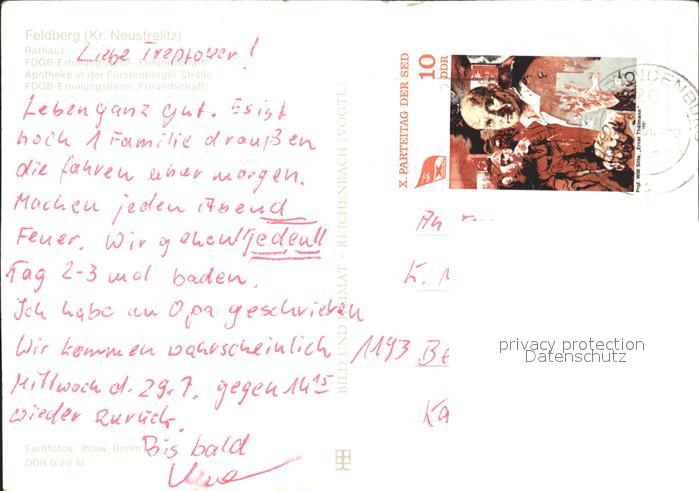 Feldberg (Kr. Neustrelitz)
Rathaus
FDGB-Erholungsheim „Freundschaft“
Apotheke in der Fürstenberger Straße
FDGB-Erholungsheim „Freundschaft“
Liebe Treptower!
Leben ganz gut. Es ist
noch 1 Familie draußen
die fahren aber morgen.
Machen jeden Abend
Feuer. Wir gehen jeden!!
Tag 2-3 mal baden.
Ich habe an Opa geschrieben
Wir kommen wahrscheinlich
Mittwoch d. 29.7. gegen 14 15
wieder zurück.
Bis bald
Farbfotos: Ihlow, Berlin
DDR 0,20 M
BILD UND HEIMAT · REICHENBACH (VOGTL)
X. PARTEITAG DER SED
10
DDR
Prof. Willi Sitte, „Ernst Thälmann“
An
K.
1193 Be
Ka
privacy protection
Datenschutz